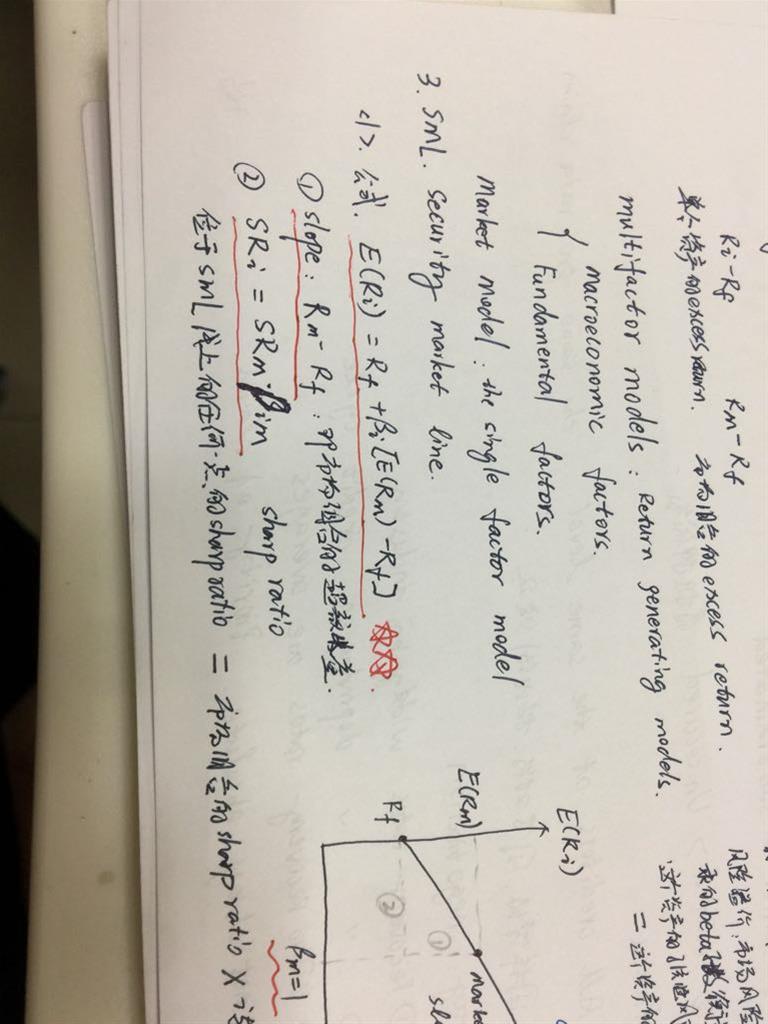 Ri-Rf Rm-Rf
单个资产的excess return. 市场组合的excess return.
multifactor models: Return generating models.
macroeconomic factors.
Fundamental factors.
Market model: the single factor model
3. SML. security market line.
<1>. 公式. E(Ri) = Rf + βi [E(Rm) - Rf]
① slope: Rm - Rf: 即市场组合的超额收益.
② SRi = SRm·βim sharp ratio
位于SML线上的任何一点的sharp ratio = 市场组合的sharp ratio ×
E(Ri)
E(Rm)
Rf
①
②
βm=1
风险溢价: 市场风险
的beta
这个资产的
= 这个资产的